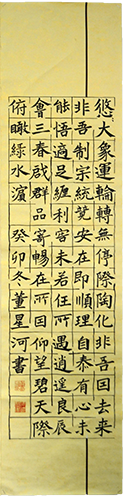 悠々大象運輪轉無停際陶化非吾囙去来
非吾制宗統竟安在即順理自泰有心未
能悟適足纏利害未若任所遇逍遥良辰
會三春啟群品寄暢在所囙仰望碧天際
俯瞰綠水濱 癸卯冬董星河書